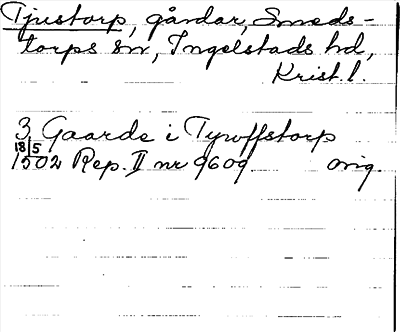 Tjustorp, gårdar, Smeds-
torps sn, Ingelstads hd,
Krist. l.
3 Gaarde i Tywffstorp
18/5
1502 Rep. II nr 9609 orig.